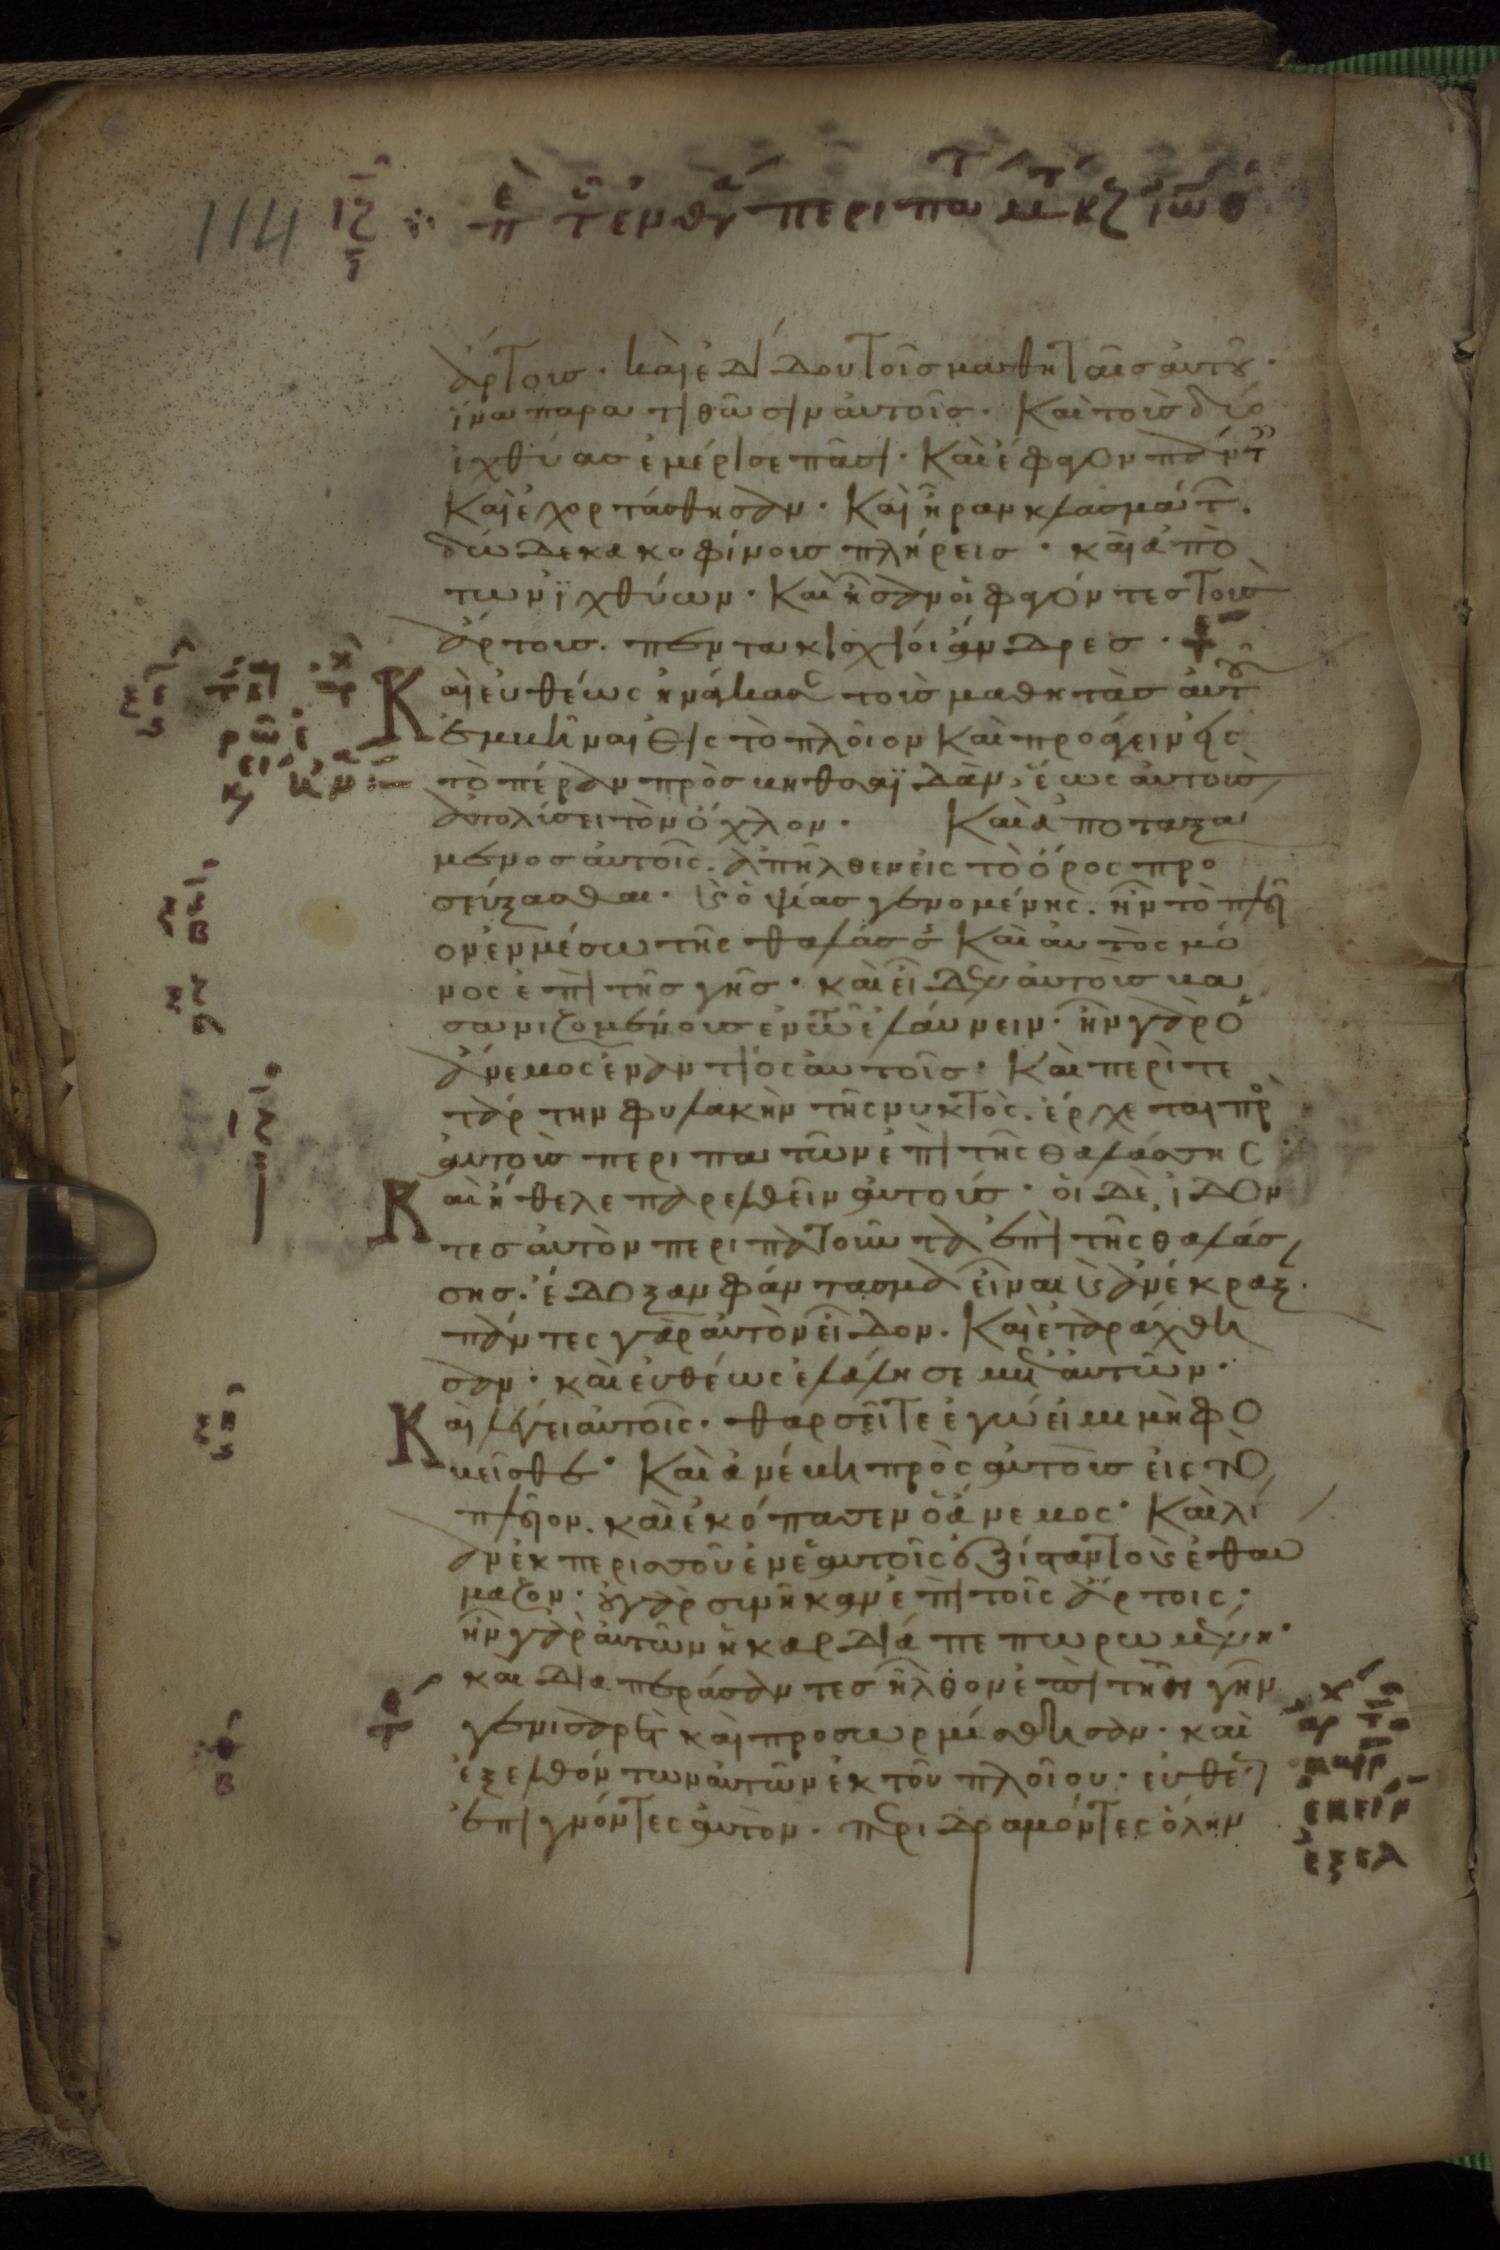 114 ιζ ∴ π τ εν θα περιπα μ κζ ιω
ἄρτους. καὶ ἐδίδου τοῖς μαθηταῖς αὐτοῦ.
ἵνα παρατιθῶσιν αὐτοῖς. Καὶ τοὺς δύο
ἰχθύας ἐμέρισε πᾶσι. Καὶ ἔφαγον πάντ
Καὶ ἐχορτάσθησαν. Καὶ ἦραν κλασμάτ.
δώδεκα κοφίνους πλήρεις. καὶ ἀπὸ
τῶν ἰχθύων. Καὶ ἦσαν οἱ φαγόντες τοὺς
ἄρτους. πεντακισχίλιοι ἄνδρες.
Καὶ εὐθέως ἠνάγκασε τοὺς μαθητὰς αὐτοῦ
ἐμβῆναι εἰς τὸ πλοῖον Καὶ προάγειν εἰς
τὸ πέραν πρὸς βηθσαϊδάν, ἕως αὐτοὺς
ἀπολύσει τὸν ὄχλον. Καὶ ἀποταξά
μενος αὐτοῖς. ἀπῆλθεν εἰς τὸ ὄρος προ
σεύξασθαι. ϗ ὀψίας γενομένης. ἦν τὸ πλοῖ
ον ἐν μέσω τῆς θαλάσσ Καὶ αὐτὸς μό
νος ἐπὶ τῆς γῆς. καὶ εἶδεν αὐτοὺς βα
σανιζομένους ἐν τῶ ἐλαύνειν. ἦν γὰρ ὁ
ἄνεμος ἐναντίος αὐτοῖς. Καὶ περὶ τε
τάρτην φυλακὴν τῆς νυκτὸς. ἔρχεται πρ
αὐτοὺς περιπατῶν ἐπὶ τῆς θαλάσσης
Καὶ ἤθελε παρελθεῖν αὐτούς. οἱ δὲ ἰδόν
τες αὐτὸν περιπατοῦντα ἐπὶ τῆς θαλάσ
σης. ἔδοξαν φάντασμα εἶναι ϗ ἀνέκραξ.
πάντες γὰρ αὐτὸν εἶδον. Καὶ ἐταράχθη
σαν. καὶ εὐθέως ἐλάλησε μετ αὐτῶν.
Καὶ λέγει αὐτοῖς. θαρσεῖτε ἐγώ εἰμι μὴ φο
βεῖσθε. Καὶ ἀνέβη πρὸς αὐτοὺς εἰς τὸ
πλοῖον. καὶ ἐκόπασεν ὁ ἄνεμος. Καὶ λί
αν ἐκ περισσοῦ ἐν ἑαυτοῖς ἐξίσταντο ϗ ἐθαύ
μαζον. οὐ γὰρ συνῆκαν ἐπὶ τοῖς ἄρτοις.
ἦν γὰρ αὐτῶν ἡ καρδία πεπωρωμένη.
καὶ διαπεράσαντες ἦλθον ἐπὶ τὴν γῆν
γενισαρὲτ καὶ προσωρμίσθησαν. καὶ
ἐξελθόντων αὐτῶν ἐκ τοῦ πλοίου. εὐθέ
ἐπιγνόντες αὐτὸν. περιδραμόντες ὅλην